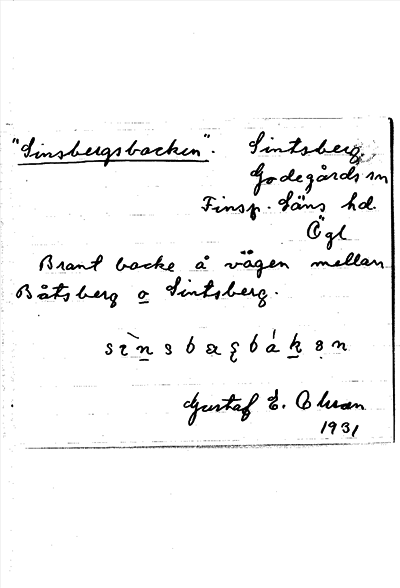 "Sinsbergsbacken". Sintsberg,
Godegårds sn
Finsp. Läns hd.
Ögl
Brant backe å vägen mellan
Båtsberg o Sintsberg.
Gustaf E. Olsson
1931